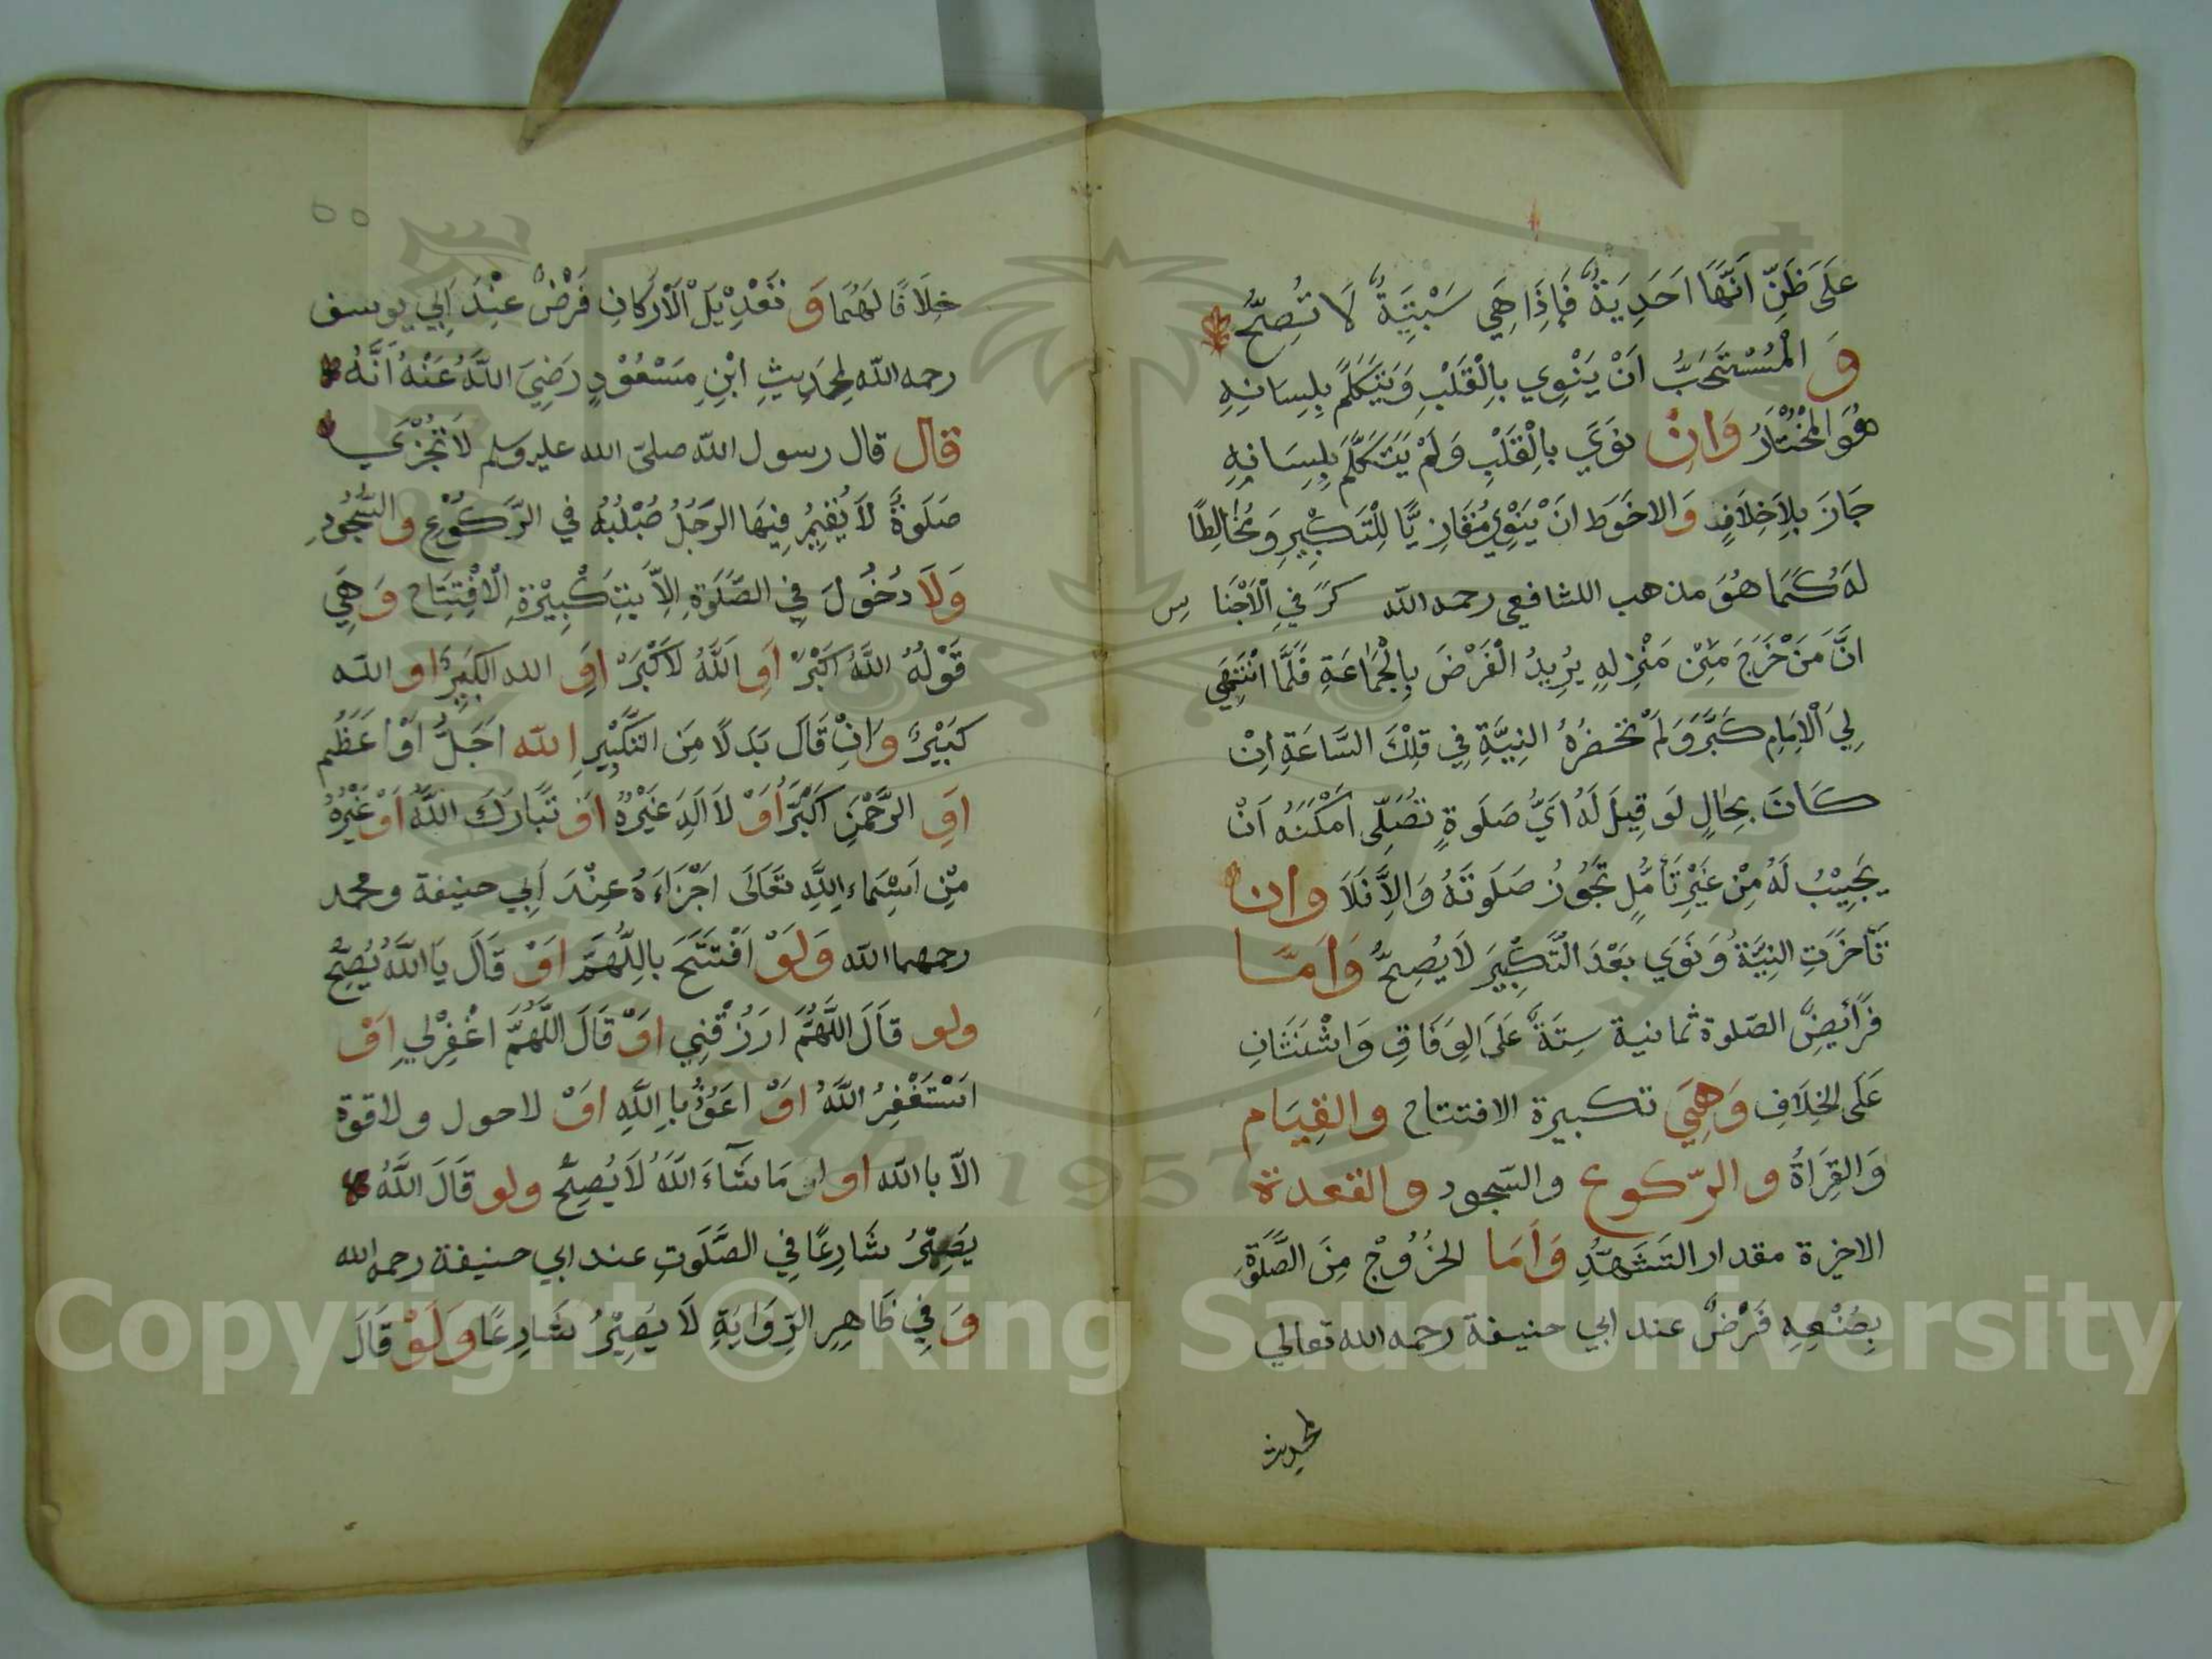 عَلَى ظَنِّ اَنَّهَا اَحَدِيَةٌ فَاِذَا هِيَ سَبْتِيَةٌ لَا تُصِحُّ
وَ الْمُسْتَحَبُّ اَنْ يَنْوِي بِالْقَلْبِ وَيَتَكَلَّمَ بِلِسَانِهِ
هُوَ الْمُخْتَارُ وَانْ نَوَي بِالْقَلْبِ وَلَمْ يَتَكَلَّمْ بِلِسَانِهِ
جَازَ بِلَاخِلَافٍ وَالاحَوَط انْ يَنْوِيَ مُقَارِنِيًّا لِلْتَكْبِيرِ وَمُخَالِطًا
لَهُ كَمَا هُوَ مذهب اللشافعي رحمه الله كرَ في الْاَجْنَا س
انَّ مَنْ خَرَجَ مِنْ مَنْزِلهِ يُرِيدُ الْفَرْضَ بِالْجَمَاعَةِ فَلَّمَا انْتَهَي
لِيَ الْاِمَامِ كَبَّرَ وَلَمْ تحضرْهُ النِيَّةِ فِي تِلْكَ السَّاعَةِ اِنْ
كَانَ بِحَالٍ لَو قِيلَ لَهُ ايُّ صَلَوةٍ تُصَلِّى اَمْكَنَهُ اَنْ
يُجِيْبُ لَهُ مِنْ غَيْرِ تَأمُلٍ تَجُوزُ صَلَوتَهُ وَالِاَّ فَلَا وان
تَأخَرَتِ النِيَّةُ وَنَوَي بَعْدَ الْتَكْبِيرَ لَا يُصِحُّ وَاَمَّا
فَرَائِضُ الصلوة ثمانية سِتَةٌ عَلَى الوِفَاقِ وَاثْنَتَانِ
عَلَى الخِلَافِ وَهِيَ تكبيرة الافتتاح والقِيَام
وَالقِرَاةُ والركوع والسجود والقعدة
الاخيرة مقدار التَشَهُّدِ وَاَمَا الخُرُوْجُ مِنَ الصَّلَوةِ
بِصُنْعِهِ فَرْضٌ عند ابي حنيفة رحمه الله تعالي
لحديث
خِلَافًا لَهُمَا وَ تَعْدِيْلَ الْاَرْكَانِ فَرْضٌ عِنْدَ اَبِي يوسف
رحمه الله لِحَدِيثِ ابْنِ مَسْعُوْدٍ رَضِيَ اللَّهُ عَنْهُ اَنَّهُ
قال قال رسول الله صلى الله عليه وسلم لَا تُجْزَي
صَلَوةٌ لَا يُقِيمُ فِيهَا الرَجُلُ صُبْلُبُهُ في الرَّكُوْعِ والسُّجُودِ
وَلَا دُخُولَ فِي الصَّلَوةِ اِلاَّ بِتَكْبِيْرَةِ الْافْتِتَاح وَهِيَ
قَوْلُهُ اللَّهُ اَكْبَرْ اَوِ اللَّهُ لَاكْبَرْ اوِ الله الكَبِيرُ او الله
كَبيْرٌ وَاِنْ قَالَ بَدَلًا مِنَ التَكْبِيْرِ الله اَجَلُّ اَوْ اَعَظَم
اَوِ الرَّحْمَنِ اَكْبَرُ اوْ لَا اَلِهَ غَيْرَهُ اَوْ تَبَارَكَ اللَّهُ اَوْ غَيْرُهُ
مِنْ اَسْمَاءِ اللَّهِ تَعَالَى اَجْزَاَهُ عِنْدَ اَبِي حنيفة ومحمد
رحمهما الله وَلَوْ افْتَتَحَ بِاللَّهُمَّ اَوْ قَالَ يَا اللَّهُ يُصِحُّ
ولو قَالَ اللَّهُمَّ ارَزُقْنِي اوْ قَالَ اللَّهُمَّ اغْفِرْلِي اَوْ
اَسْتَغْفِرُ اللَّهَ اوْ اعَوُذُ بِاللَّهِ اوْ لاحول ولاقوة
الاّ باالله او ان مَا شَاءَ اللَّهُ لَا يُصِحُّ ولو قَالَ اللَّهُ
يَصِيْرُ شَارِعًا فِي الصَّلَوتِ عند ابي حنيفة رحمه الله
وَ فِي ظَاهِرِ الرِّوَايَةِ لَا يَصِيْرُ شَارِعًا وَلَوْ قَالَ
Copyright © King Saud University
1957